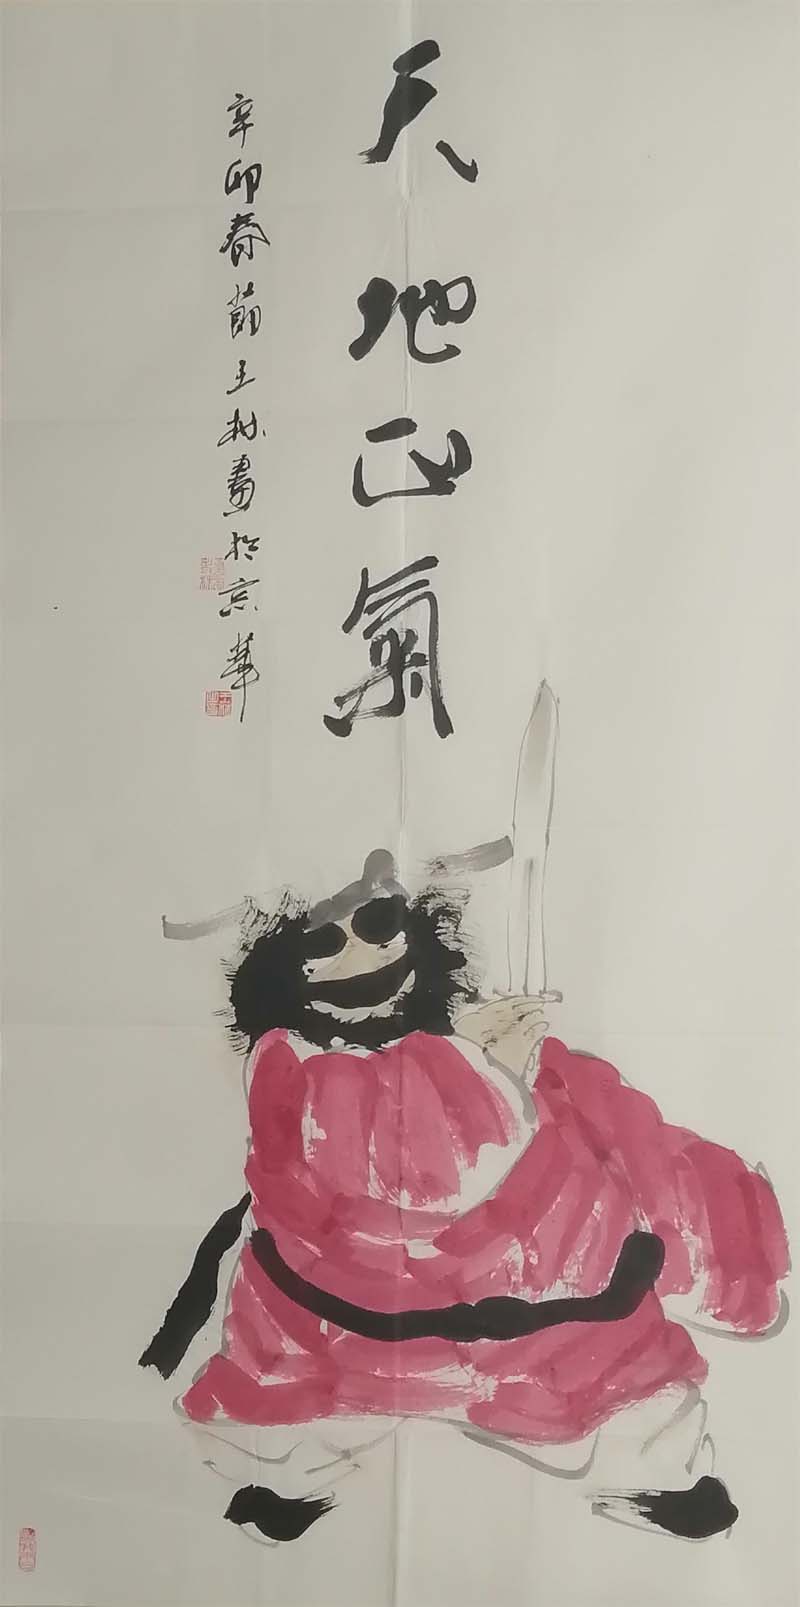 天地正氣
辛卯春節王林畫於京華